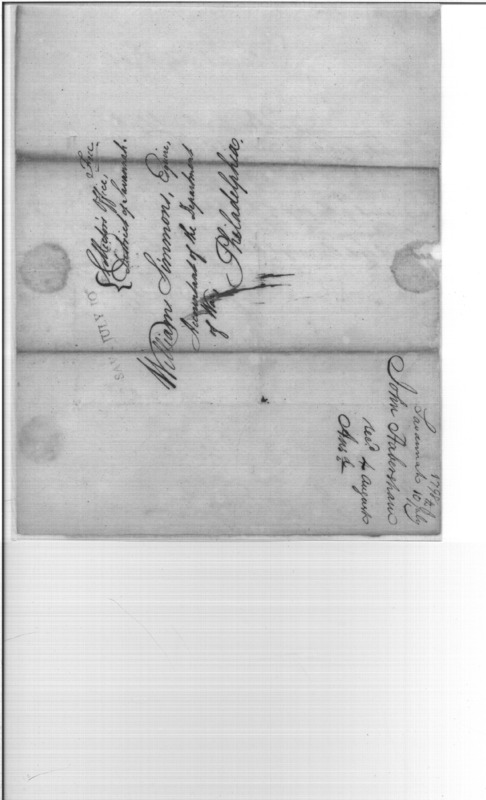 Free
Collector's Office,
District of Savannah.
SAV JULY 10
William Simmons, Esquire,
Accountant of the Department
of War,
Philadelphia.
Savannah 10 July
John Habersham
Rec'd 4 August
Ans'd